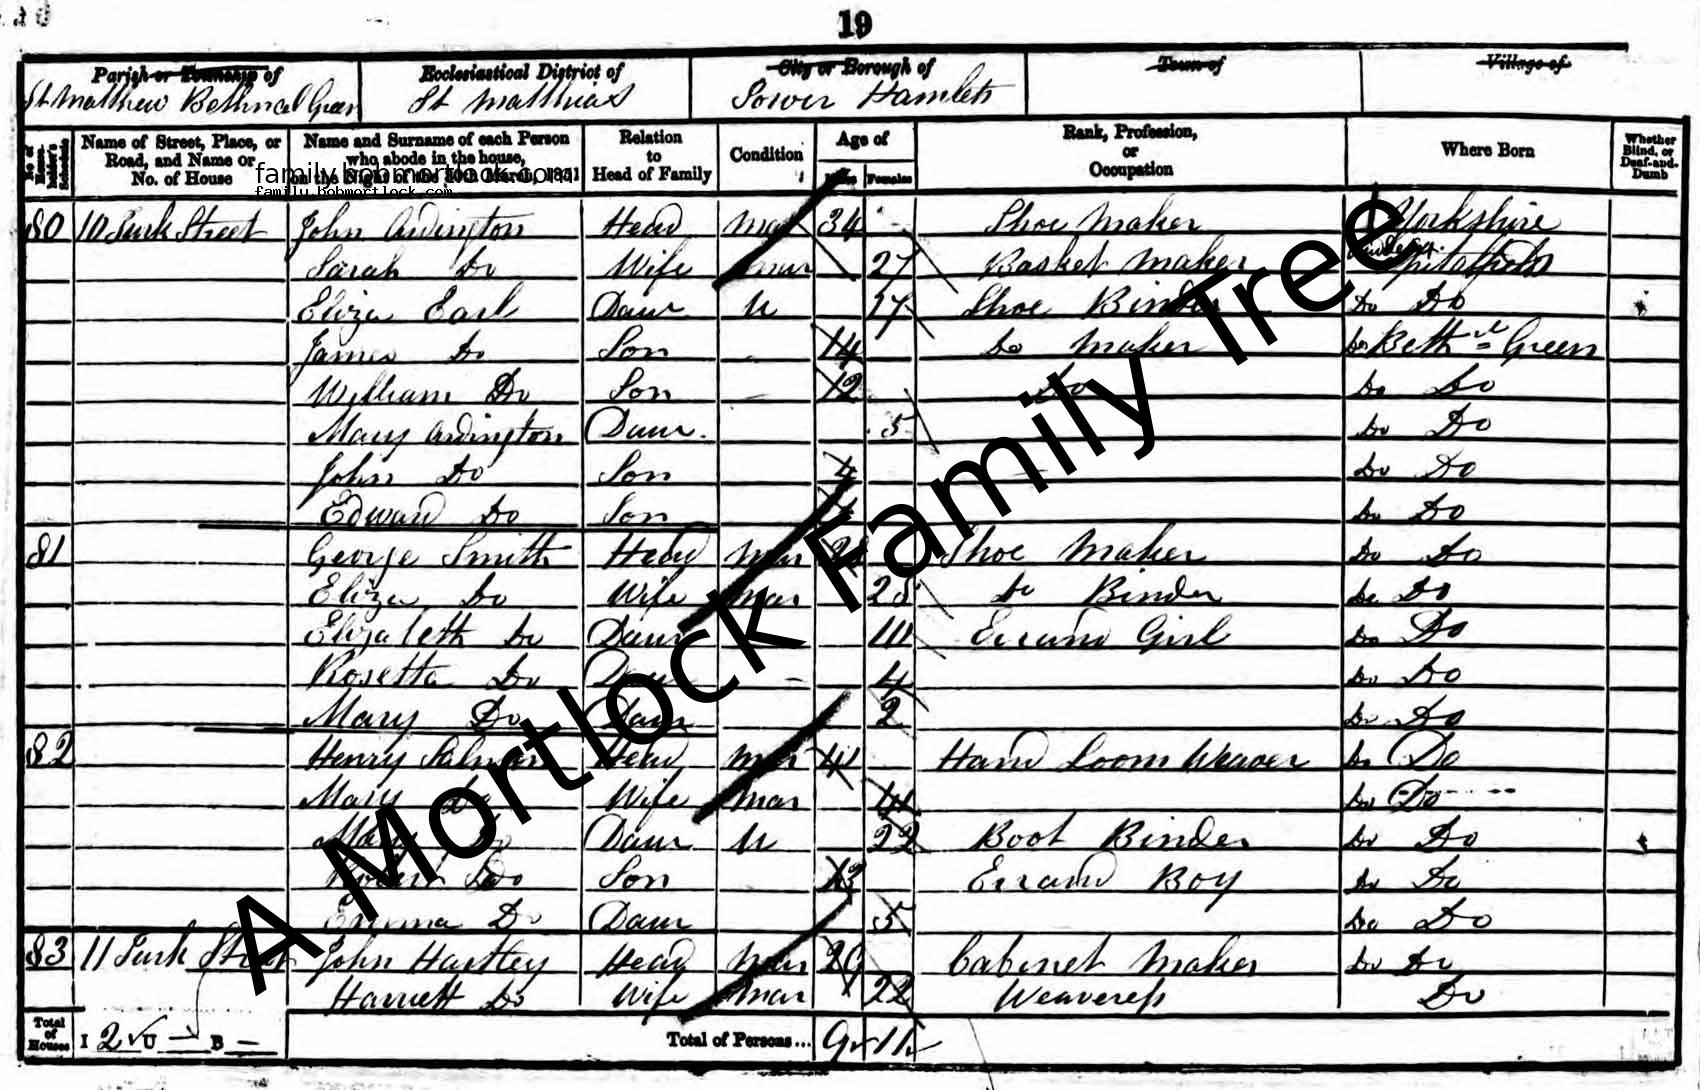 19
Parish or Township of Ecclesiastical District of City or Borough of Town of Village of
St Matthew Bethnal Green St Matthias Tower Hamlets
No. of House-holder's Schedule Name of Street, Place, or Road, and Name or No. of House Name and Surname of each Person who abode in the house, on the Night of the 30th March, 1851 Relation to Head of Family Condition Age of Males Females Rank, Profession, or Occupation Where Born Whether Blind, or Deaf-and-Dumb
family.bobmortlock.com
family.bobmortlock.com
80 10 Turk Street John Ardington Head Mar 34 Shoe Maker Yorkshire
Sarah Do Wife Mar 27 Basket Maker Middlesex Spitalfields
Eliza Earl Daur U 17 Shoe Binder Do Do
James Do Son 14 Do Maker Do Bethnl Green
William Do Son 12 Do Do Do
Mary Ardington Daur 5 Do Do
John Do Son 4 Do Do
Edward Do Son Do Do
81 George Smith Head Mar 28 Shoe Maker Do Do
Eliza Do Wife Mar 28 Do Binder Do Do
Elizabeth Do Daur 10 Errand Girl Do Do
Rosetta Do Daur 4 Do Do
Mary Do Daur 2 Do Do
82 Henry Salmon Head Mar 41 Hand Loom Weaver Do Do
Mary Do Wife Mar 41 Do Do
Mary Do Daur U 22 Boot Binder Do Do
Robert Do Son 13 Errand Boy Do Do
Emma Do Daur 5 Do Do
83 11 Turk Street John Hartley Head Mar 29 Cabinet Maker Do Do
Harriett Do Wife Mar 22 Weaveress Do
Total of Houses I 2 U — B — Total of Persons... 9 11
A Mortlock Family Tree